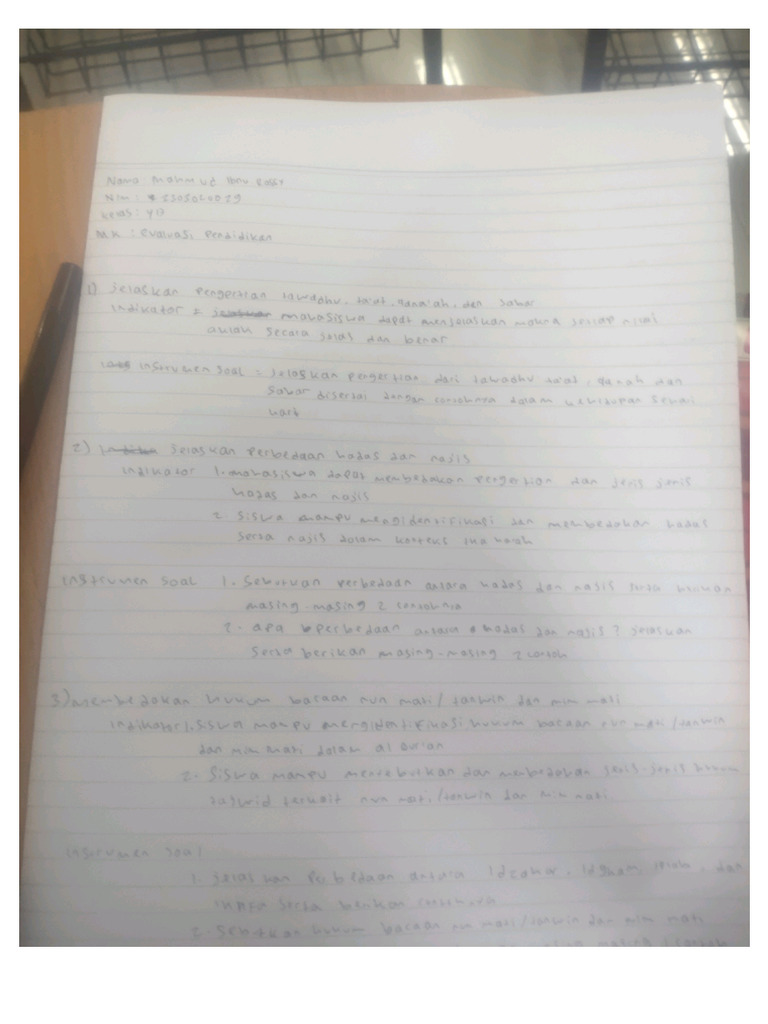 Nama : Mahmud Ibnu
Nim :
Kelas :
MK : Evaluasi Pendidikan
1) jelaskan Pengertian tawadhu, ta'at, qana'ah, dan sabar
Indikator = mahasiswa dapat menjelaskan makna setiap nilai
secara jelas dan benar
instrumen soal = jelaskan pengertian dari tawadhu ta'at, qanah dan
sabar disertai dengan contohnya dalam kehidupan sehari
hari
2) jelaskan perbedaan hadas dan najis
indikator 1. mahasiswa dapat membedakan pengertian dan jenis jenis
hadas dan najis
2. siswa mampu mengidentifikasi dan membedakan hadas
serta najis dalam konteks
instrumen soal 1. Sebutkan perbedaan antara hadas dan najis serta berikan
masing-masing 2 contohnya
2. apa perbedaan antara hadas dan najis? jelaskan
serta berikan masing-masing 2 contoh
3) membedakan hukum bacaan nun mati/tanwin dan mim mati
indikator 1. siswa mampu mengidentifikasi hukum bacaan nun mati/tanwin
dan mim mati dalam al Qur'an
2. siswa mampu menyebutkan dan membedakan jenis-jenis hukum
tajwid terkait nun mati/tanwin dan mim mati
instrumen soal
1. jelaskan perbedaan antara Idzhar, Idgham, dan
ikhfa serta berikan contohnya
2. Sebutkan hukum bacaan nun mati/tanwin dan mim mati